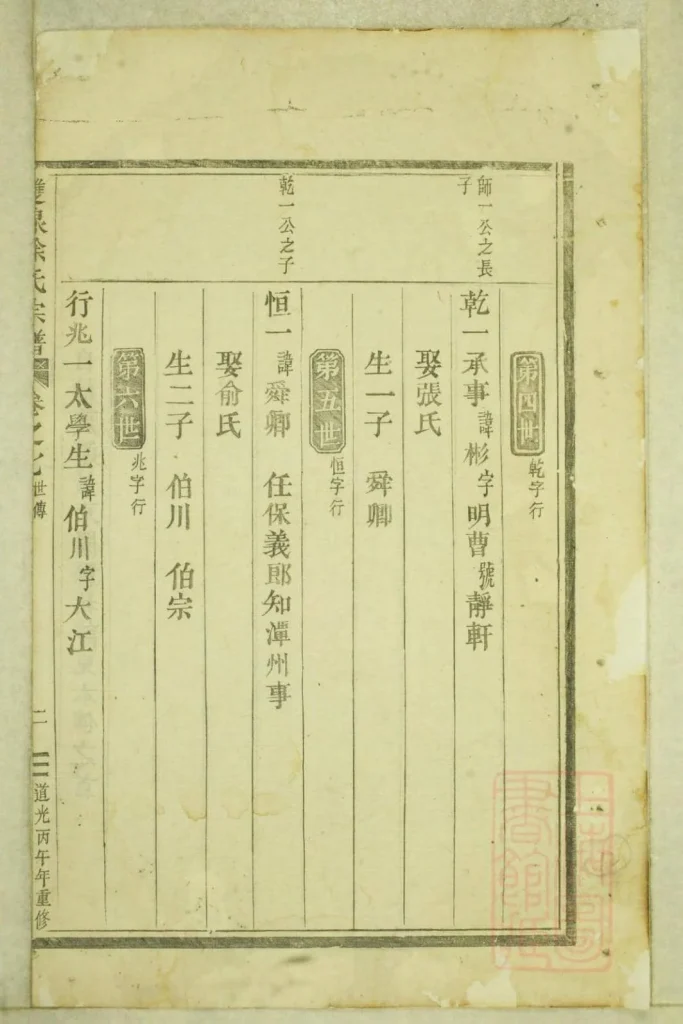 第四世 乾字行
師一公之長子
乾一承事諱彬字明曹號靜軒
娶張氏
生一子 舜卿
第五世 恒字行
乾一公之子
恒一諱舜卿 任保義郎知潭州事
娶俞氏
生二子 伯川 伯宗
第六世 兆字行
行兆一太學生諱伯川字大江
雙泉徐氏宗譜 卷之 世傳
道光丙午年重修